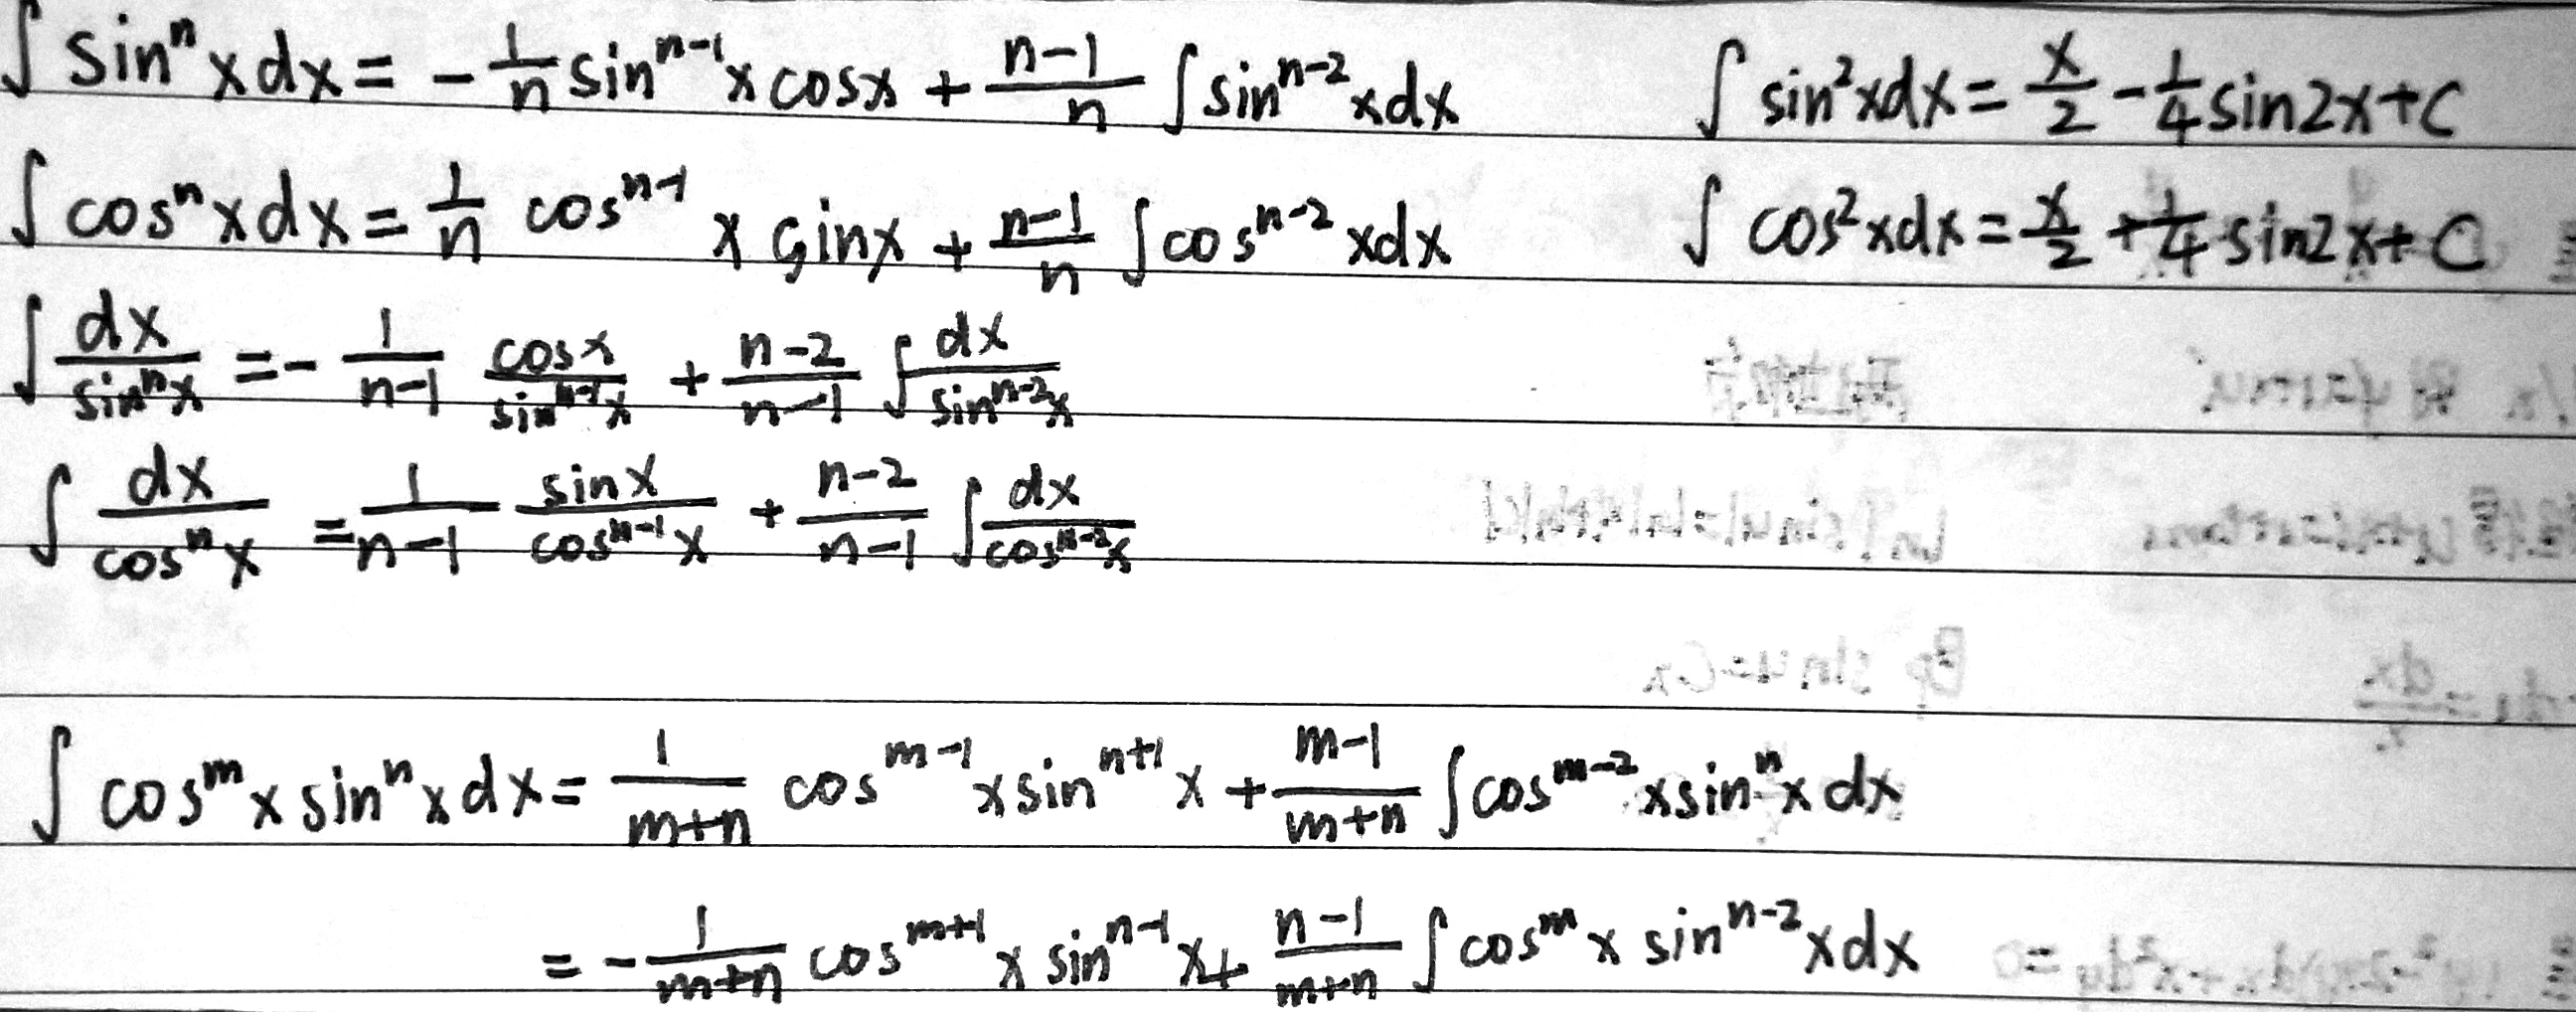 ∫ sinⁿxdx = -1/n sinⁿ⁻¹x cosx + (n-1)/n ∫sinⁿ⁻²xdx    ∫ sin²xdx = x/2 - 1/4 sin2x+C
∫ cosⁿxdx = 1/n cosⁿ⁻¹x sinx + (n-1)/n ∫cosⁿ⁻²xdx    ∫ cos²xdx = x/2 + 1/4 sin2x+C
∫ dx/sinⁿx = - 1/(n-1) cosx/sinⁿ⁻¹x + (n-2)/(n-1) ∫ dx/sinⁿ⁻²x
∫ dx/cosⁿx = 1/(n-1) sinx/cosⁿ⁻¹x + (n-2)/(n-1) ∫ dx/cosⁿ⁻²x
∫ cosᵐx sinⁿxdx = 1/(m+n) cosᵐ⁻¹x sinⁿ⁺¹x + (m-1)/(m+n) ∫cosᵐ⁻²x sinⁿx dx
= - 1/(m+n) cosᵐ⁺¹x sinⁿ⁻¹x + (n-1)/(m+n) ∫ cosᵐx sinⁿ⁻²xdx